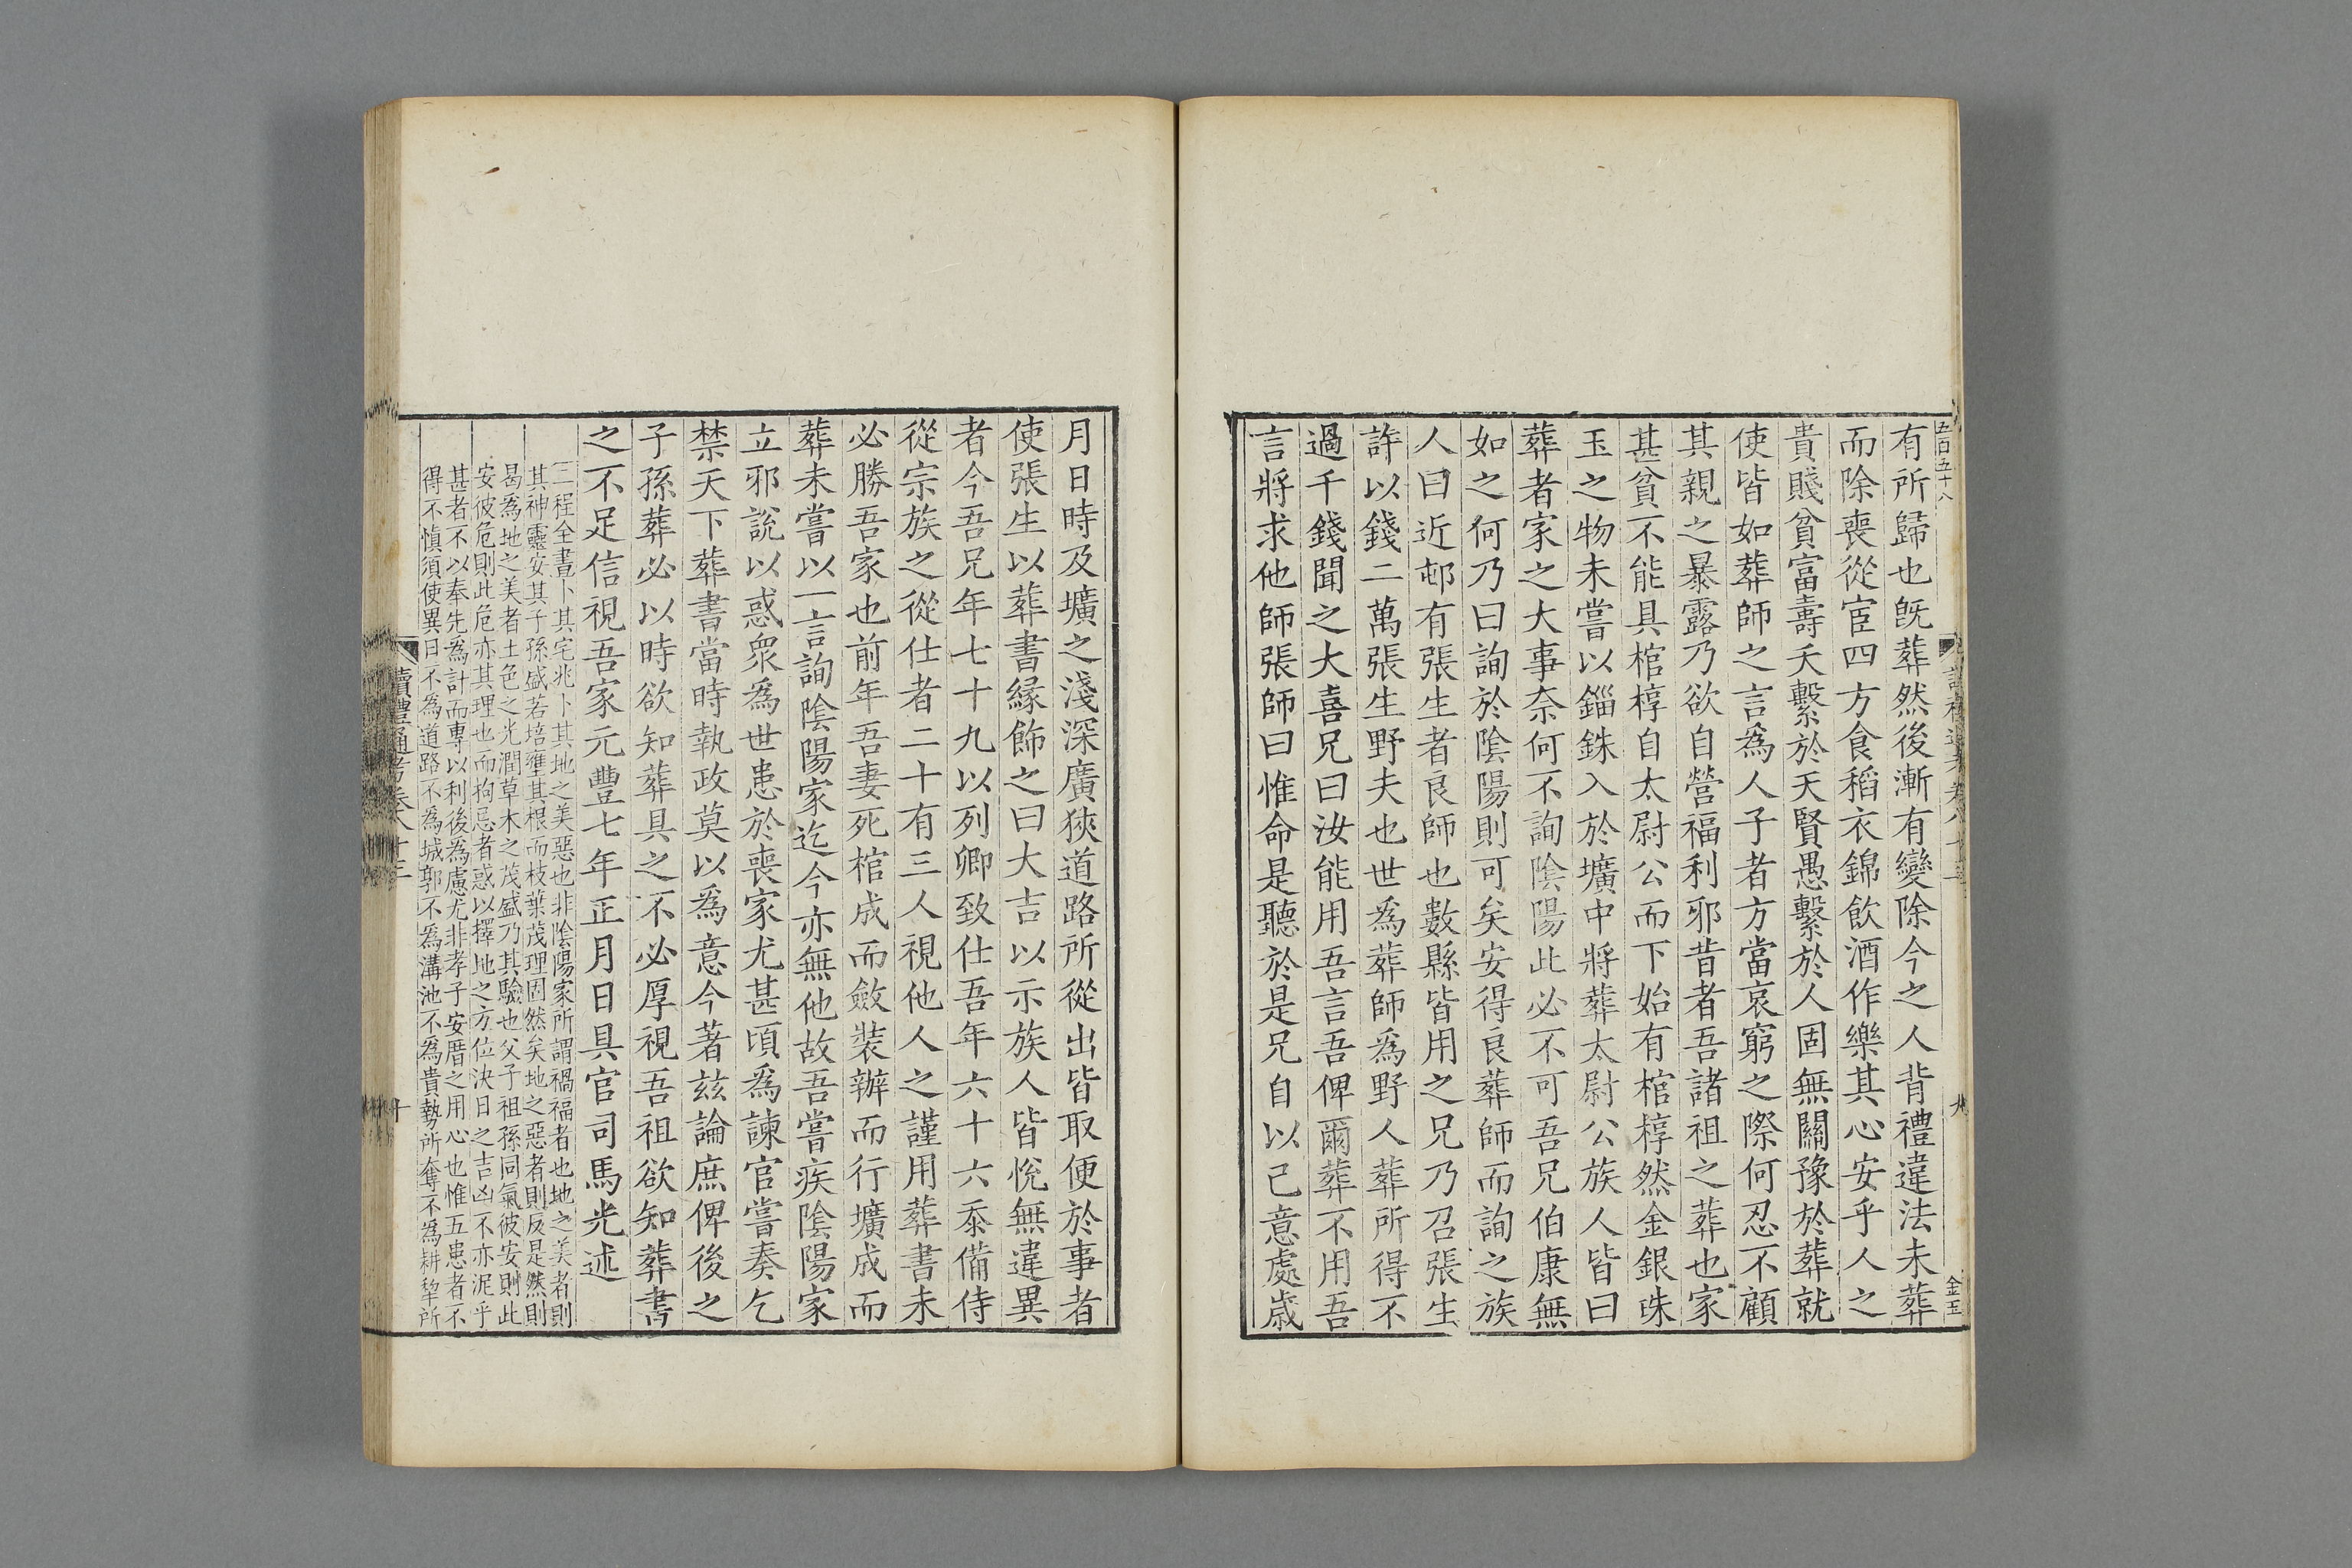 五百五十八
有所歸也旣葬然後漸有變除今之人背禮違法未葬
而除喪從宦四方食稻衣錦飮酒作樂其心安乎人之
貴賤貧富壽夭繫於天賢愚繫於人固無關豫於葬就
使皆如葬師之言為人子者方當哀窮之際何忍不顧
其親之暴露乃欲自營福利邪昔者吾諸祖之葬也家
甚貧不能具棺椁自太尉公而下始有棺椁然金銀珠
玉之物未嘗以錙銖入於壙中將葬太尉公族人皆曰
葬者家之大事奈何不詢陰陽此必不可吾兄伯康無
如之何乃曰詢於陰陽則可矣安得良葬師而詢之族
人曰近邨有張生者良師也數縣皆用之兄乃召張生
許以錢二萬張生野夫也世為葬師為野人葬所得不
過千錢聞之大喜兄曰汝能用吾言吾俾爾葬不用吾
言將求他師張師曰惟命是聽於是兄自以己意處歲
九
金玉
月日時及壙之淺深廣狹道路所從出皆取便於事者
使張生以葬書緣飾之曰大吉以示族人皆悅無違異
者今吾兄年七十九以列卿致仕吾年六十六忝備侍
從宗族之從仕者二十有三人視他人之謹用葬書未
必勝吾家也前年吾妻死棺成而斂裝辦而行壙成而
葬未嘗以一言詢陰陽家迄今亦無他故吾嘗疾陰陽家
立邪說以惑衆為世患於喪家尤甚頃為諫官嘗奏乞
禁天下葬書當時執政莫以為意今著茲論庶俾後之
子孫葬必以時欲知葬具之不必厚視吾祖欲知葬書
之不足信視吾家元豐七年正月日具官司馬光述
二程全書卜其宅兆卜其地之美惡也非陰陽家所謂禍福者也地之美者則
其神靈安其子孫盛若培壅其根而枝葉茂理固然矣地之惡者則反是然則
曷為地之美者土色之光潤草木之茂盛乃其驗也父子祖孫同氣彼安則此
安彼危則此危亦其理也而拘忌者惑以擇地之方位決日之吉凶不亦泥乎
甚者不以奉先為計而專以利後為慮尤非孝子安厝之用心也惟五患者不
得不慎須使異日不為道路不為城郭不為溝池不為貴勢所奪不為耕犂所
讀禮通考卷八十三
十